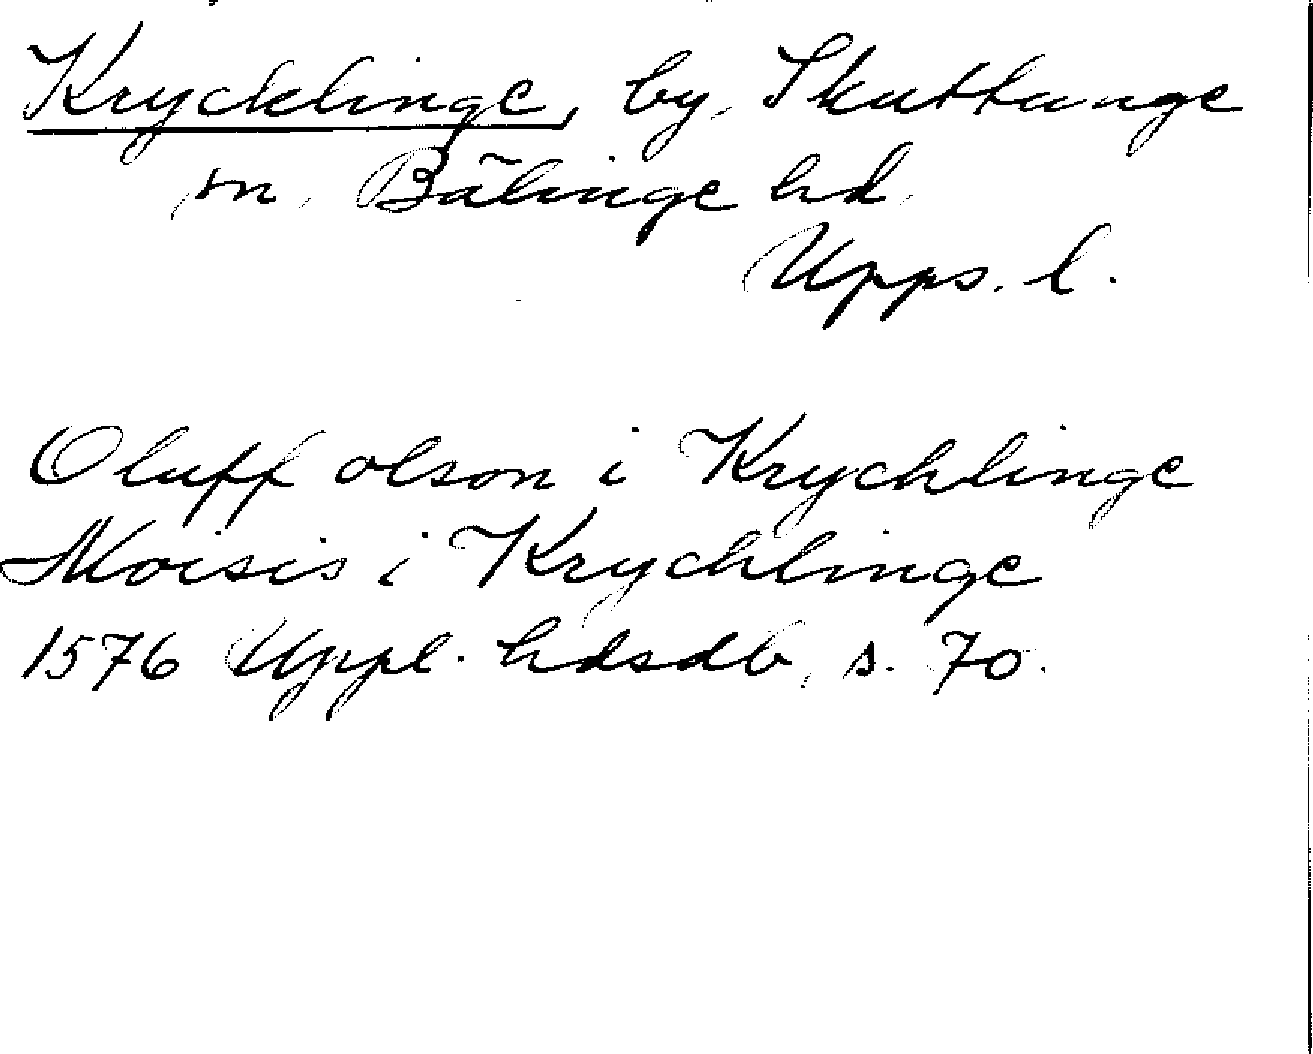 Krycklinge, by, Skuttunge
sn, Bälinge hd,
Upps. l.
Oluff olson i Krychlinge
Moisis i Krychlinge
1576 Uppl. hdsdb, s. 70.